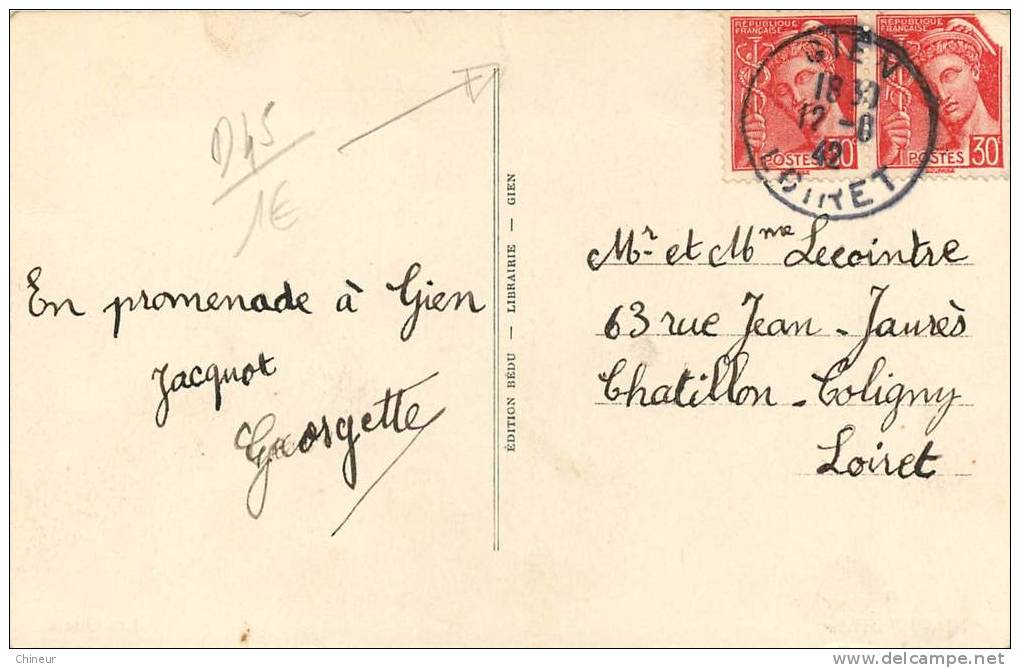 D45
1€
En promenade à Gien
Jacquot
Georgette
ÉDITION BÉDU — LIBRAIRIE — GIEN
RÉPUBLIQUE FRANÇAISE
POSTES 30c
RÉPUBLIQUE FRANÇAISE
POSTES 30c
GIEN
18 30
12 -8
42
LOIRET
Mr et Mme Lecointre
63 rue Jean-Jaurès
Chatillon-Coligny
Loiret
Chineur
www.delcampe.net